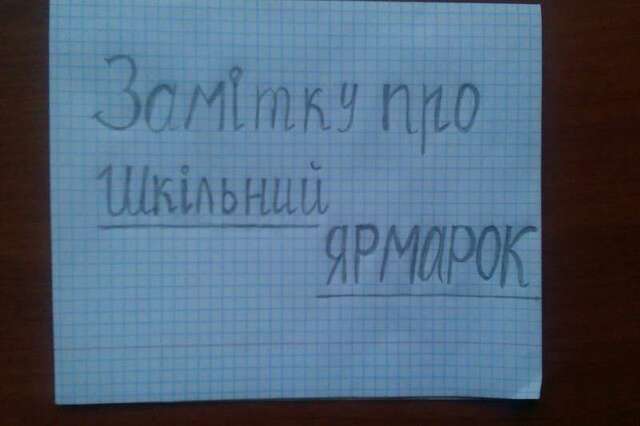 Замітку про
шкільний
ЯРМАРОК